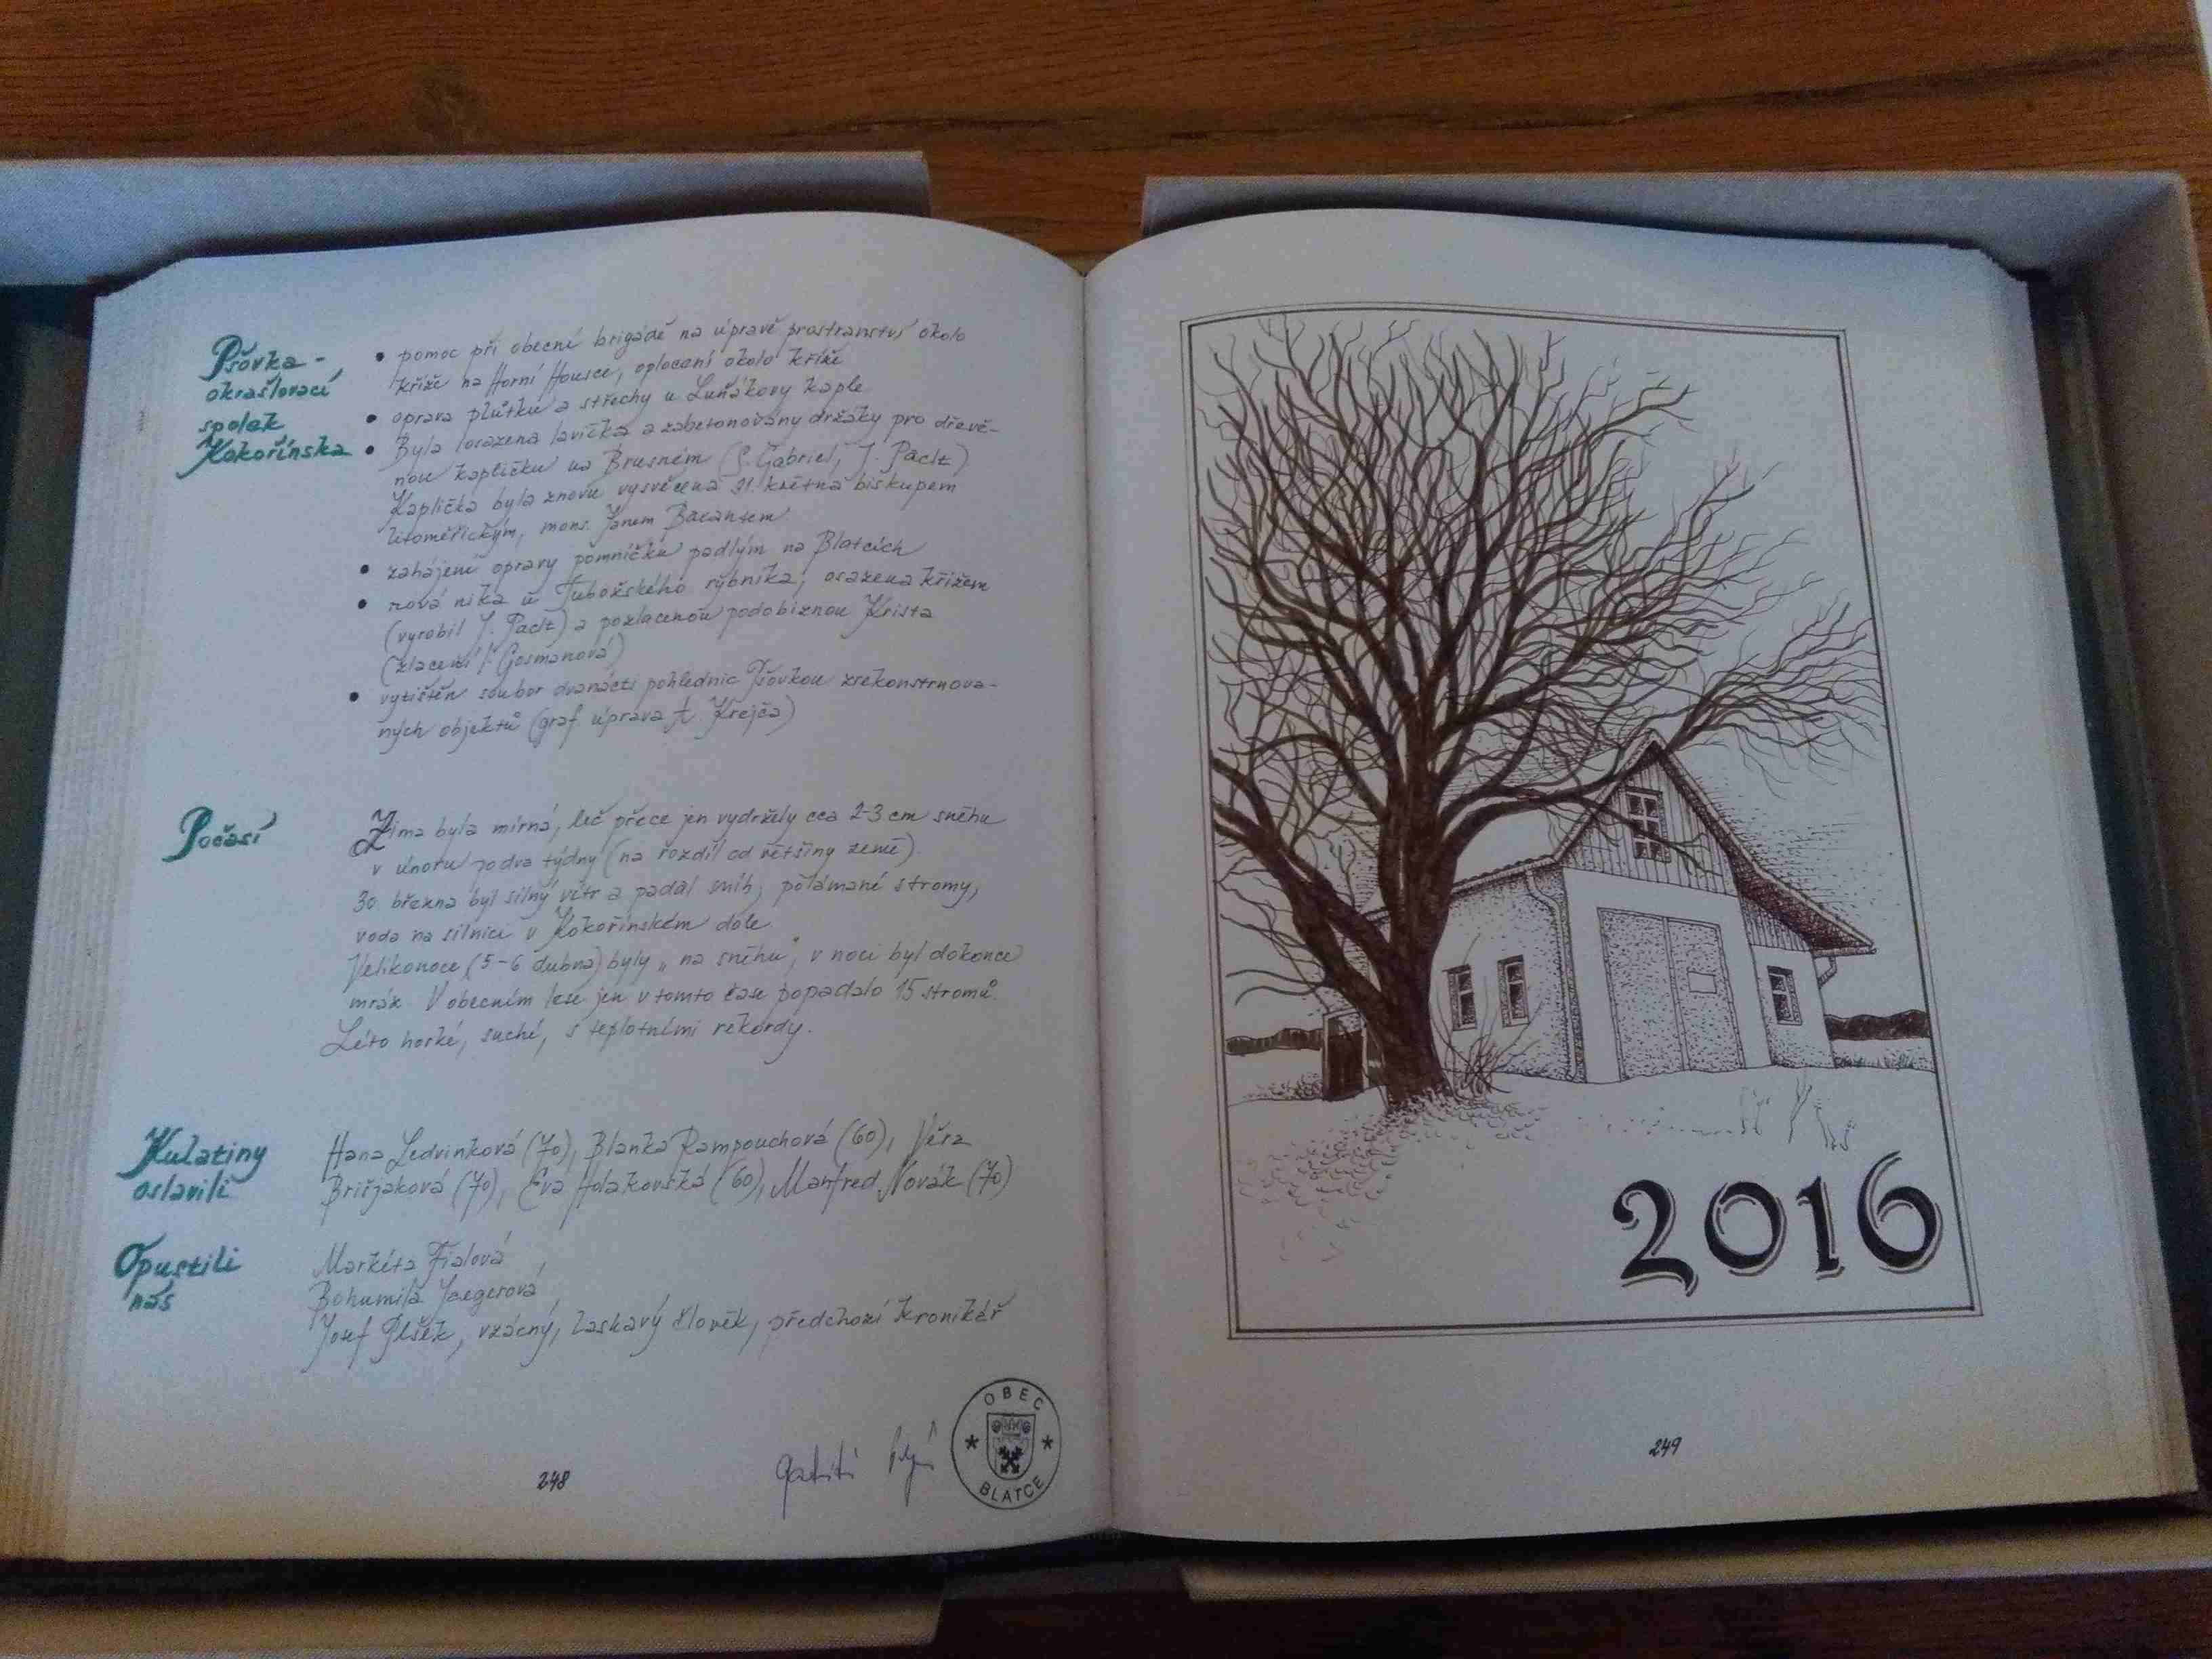 Pšovka -
okrašlovací
spolek
Kokořínska
• pomoc při obecní brigádě na úpravě prostranství okolo
kříže na Horní Housce, oplocení okolo kříže
• oprava plůtku a střechy u Luňákovy kaple
• Byla osazena lavička a zabetonovány držáky pro dřevě-
nou kapličku na Brusném (S. Gabriel, J. Paclt)
Kaplička byla znovu vysvěcena 31. května biskupem
litoměřickým, mons. Janem Baxantem
• zahájení opravy pomníčku padlým na Blatcích
• nová nika u Tubožského rybníka, osazena křížem
(vyrobil J. Paclt) a pozlacenou podobiznou Krista
(zlacení Gosmanová)
• vytištěn soubor dvanácti pohlednic Pšovkou zrekonstruova-
ných objektů (graf. úprava Krejča)
Počasí
Zima byla mírná, leč přece jen vydržely cca 2-3 cm sněhu
v únoru po dva týdny (na rozdíl od většiny země).
30. března byl silný vítr a padal sníh, polámané stromy,
voda na silnici v Kokořínském dole.
Velikonoce (5-6 dubna) byly „na sněhu", v noci byl dokonce
mráz. V obecním lese jen v tomto čase popadalo 15 stromů.
Léto horké, suché, s teplotními rekordy.
Kulatiny
oslavili
Hana Ledvinková (70), Blanka Rampouchová (60), Věra
Brišjaková (70), Eva Holakovská (60), Manfred Novák (70)
Opustili
nás
Markéta Fialová
Bohumila Jaegerová
Josef Plšek, vzácný, laskavý člověk, předchozí kronikář
OBEC
BLATCE
248
2016
249